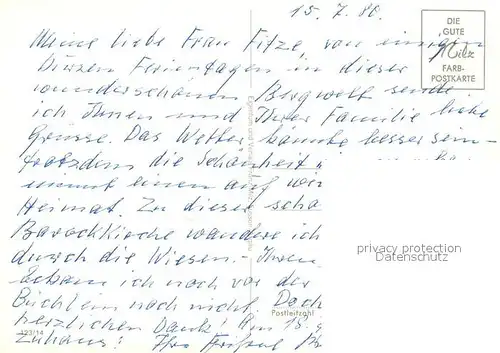 15. 7. 80.
DIE
GUTE
Milz
FARB-
POSTKARTE
Meine liebe Frau Fitze, von einigen
kurzen Ferientagen in dieser
wunderschönen Bergwelt sende
ich Ihnen und Ihrer Familie liebe
Grüsse. Das Wetter könnte besser sein -
trotzdem die Schönheit
nimmt einen auf wie
Heimat. Zu dieser schö
Barockkirche wandere ich
durch die Wiesen. - Ihren
ich noch vor der
Büchlein noch nicht. Doch
herzlichen Dank! Am 18.
Zuhause! Ihre
privacy protection
Datenschutz
Postleitzahl
123/14